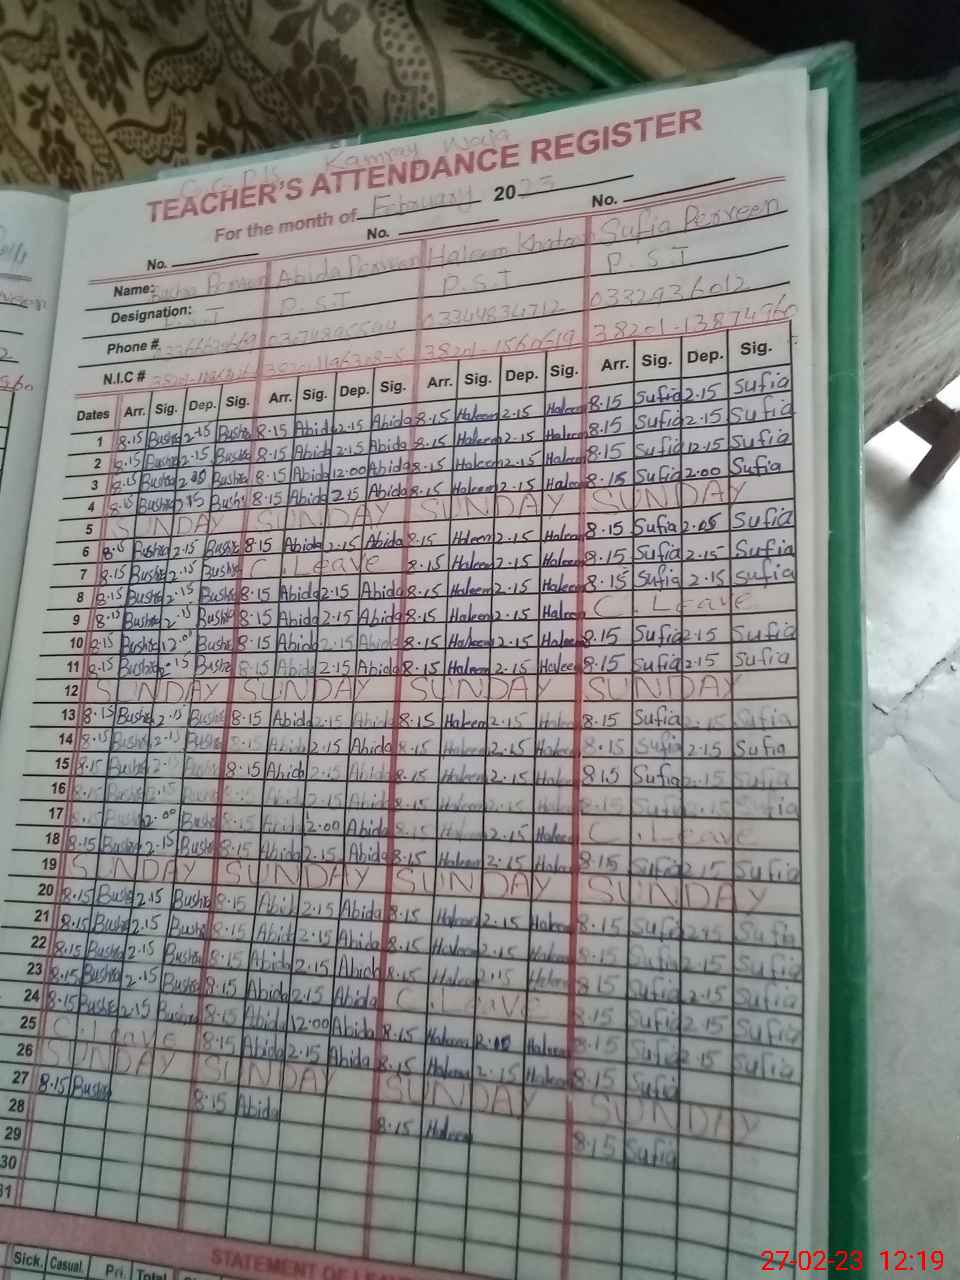 G.G.P/S Kamray Waja
TEACHER'S ATTENDANCE REGISTER
For the month of February 2023
No. No. No.
Name: Bushra Perveen Abida Perveen Haleem Khatoon Sufia Perveen
Designation: P.S.T P.S.T P.S.T P.S.T
Phone #. 03344834712 0332936012
N.I.C # 38201-13874960
Dates Arr. Sig. Dep. Sig. Arr. Sig. Dep. Sig. Arr. Sig. Dep. Sig. Arr. Sig. Dep. Sig.
1 8.15 Bushra 2.15 Bushra 8.15 Abida 2.15 Abida 8.15 Haleem 2.15 Haleem 8.15 Sufia 2.15 Sufia
2 8.15 Bushra 2.15 Bushra 8.15 Abida 2.15 Abida 8.15 Haleem 2.15 Haleem 8.15 Sufia 2.15 Sufia
3 8.15 Bushra Bushra 8.15 Abida 12.00 Abida 8.15 Haleem 2.15 Haleem 8.15 Sufia 12.15 Sufia
4 8.15 Bushra 2.15 Bushra 8.15 Abida 2.15 Abida 8.15 Haleem 2.15 Haleem 8.15 Sufia 2.00 Sufia
5 SUNDAY SUNDAY SUNDAY SUNDAY
6 8.15 Bushra 2.15 Bushra 8.15 Abida 2.15 Abida 8.15 Haleem 2.15 Haleem 8.15 Sufia 2.05 Sufia
7 8.15 Bushra 2.15 Bushra C.Leave 8.15 Haleem 2.15 Haleem 8.15 Sufia 2.15 Sufia
8 8.15 Bushra 2.15 Bushra 8.15 Abida 2.15 Abida 8.15 Haleem 2.15 Haleem 8.15 Sufia 2.15 Sufia
9 8.15 Bushra 2.15 Bushra 8.15 Abida 2.15 Abida 8.15 Haleem 2.15 Haleem C.Leave
10 8.15 Bushra 12.00 Bushra 8.15 Abida 2.15 Abida 8.15 Haleem 2.15 Haleem 8.15 Sufia 2.15 Sufia
11 8.15 Bushra 2.15 Bushra 8.15 Abida 2.15 Abida 8.15 Haleem 2.15 Haleem 8.15 Sufia 2.15 Sufia
12 SUNDAY SUNDAY SUNDAY SUNDAY
13 8.15 Bushra 2.15 Bushra 8.15 Abida 2.15 Abida 8.15 Haleem 2.15 Haleem 8.15 Sufia 2.15 Sufia
14 8.15 Bushra 2.15 Bushra 8.15 Abida 2.15 Abida 8.15 Haleem 2.15 Haleem 8.15 Sufia 2.15 Sufia
15 8.15 Bushra 2.15 Bushra 8.15 Abida 2.15 Abida 8.15 Haleem 2.15 Haleem 8.15 Sufia 2.15 Sufia
16 8.15 Bushra 2.15 Bushra 8.15 Abida 2.15 Abida 8.15 Haleem 2.15 Haleem 8.15 Sufia 2.15 Sufia
17 8.15 Bushra 2.00 Bushra 8.15 Abida 2.00 Abida 8.15 Haleem 2.15 Haleem C.Leave
18 8.15 Bushra 2.15 Bushra 8.15 Abida 2.15 Abida 8.15 Haleem 2.15 Haleem 8.15 Sufia 2.15 Sufia
19 SUNDAY SUNDAY SUNDAY SUNDAY
20 8.15 Bushra 2.15 Bushra 8.15 Abida 2.15 Abida 8.15 Haleem 2.15 Haleem 8.15 Sufia Sufia
21 8.15 Bushra 2.15 Bushra 8.15 Abida 2.15 Abida 8.15 Haleem 2.15 Haleem 8.15 Sufia 2.15 Sufia
22 8.15 Bushra 2.15 Bushra 8.15 Abida 2.15 Abida 8.15 Haleem 2.15 Haleem 8.15 Sufia 2.15 Sufia
23 8.15 Bushra 2.15 Bushra 8.15 Abida 2.15 Abida C.Leave 8.15 Sufia 2.15 Sufia
24 8.15 Bushra 2.15 Bushra 8.15 Abida 12.00 Abida 8.15 Haleem Haleem 8.15 Sufia 2.15 Sufia
25 C.Leave 8.15 Abida 2.15 Abida 8.15 Haleem 2.15 Haleem 8.15 Sufia
26 SUNDAY SUNDAY SUNDAY SUNDAY
27 8.15 Bushra 8.15 Abida 8.15 Haleem 8.15 Sufia
28
29
30
31
STATEMENT OF LEA
Sick. Casual. Pri. Total
27-02-23 12:19